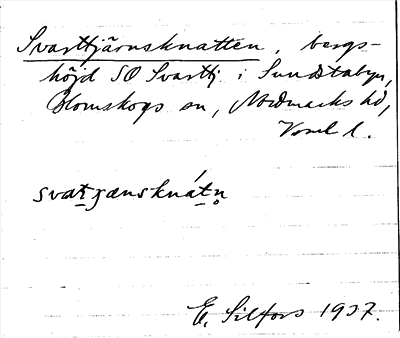 Svarttjärnsknatten, bergs-
höjd SO Svarttj. i Sundstabyn,
Blomskogs sn, Nordmarks hd,
Verml l.
svat̲ɼænsknát̲n̥
E. Silfors 1937.